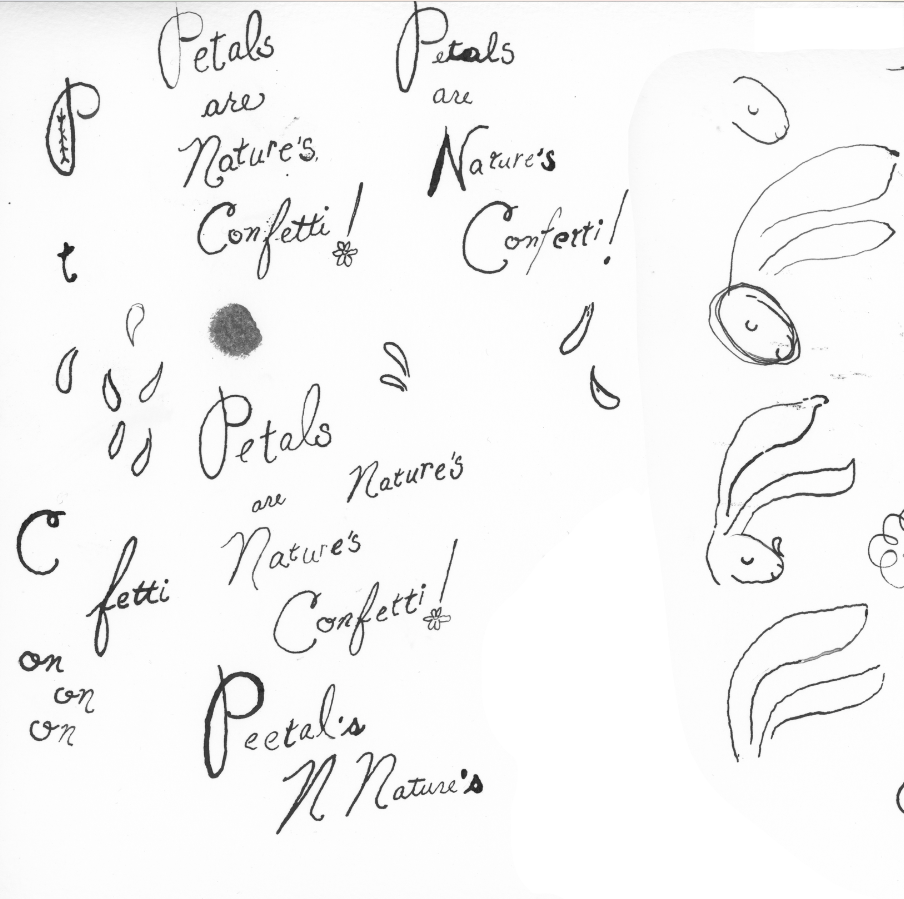 Petals
are
Nature's
Confetti!
Petals
are
Nature's
Conferti!
P
t
Petals
are
Nature's
Nature's
Confetti!
C
fetti
on
on
on
Peetal's
N Nature's